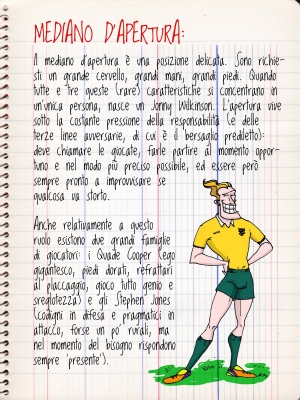 MEDIANO D'APERTURA:
Il mediano d'apertura è una posizione delicata. Sono richie-
sti un grande cervello, grandi mani, grandi piedi. Quando
tutte e tre queste (rare) caratteristiche si concentrano in
un'unica persona, nasce un Jonny Wilkinson. L'apertura vive
sotto la costante pressione della responsabilità (e delle
terze linee avversarie, di cui è il bersaglio prediletto):
deve chiamare le giocate, farle partire al momento oppor-
tuno e nel modo più preciso possibile, ed essere però
sempre pronto a improvvisare se
qualcosa va storto.
Anche relativamente a questo
ruolo esistono due grandi famiglie
di giocatori: i Quade Cooper (ego
gigantesco, piedi dorati, refrattari
al placcaggio, gioco tutto genio e
sregolatezza) e gli Stephen Jones
(codigni in difesa e pragmatici in
attacco, forse un po' rurali, ma
nel momento del bisogno rispondono
sempre 'presente').